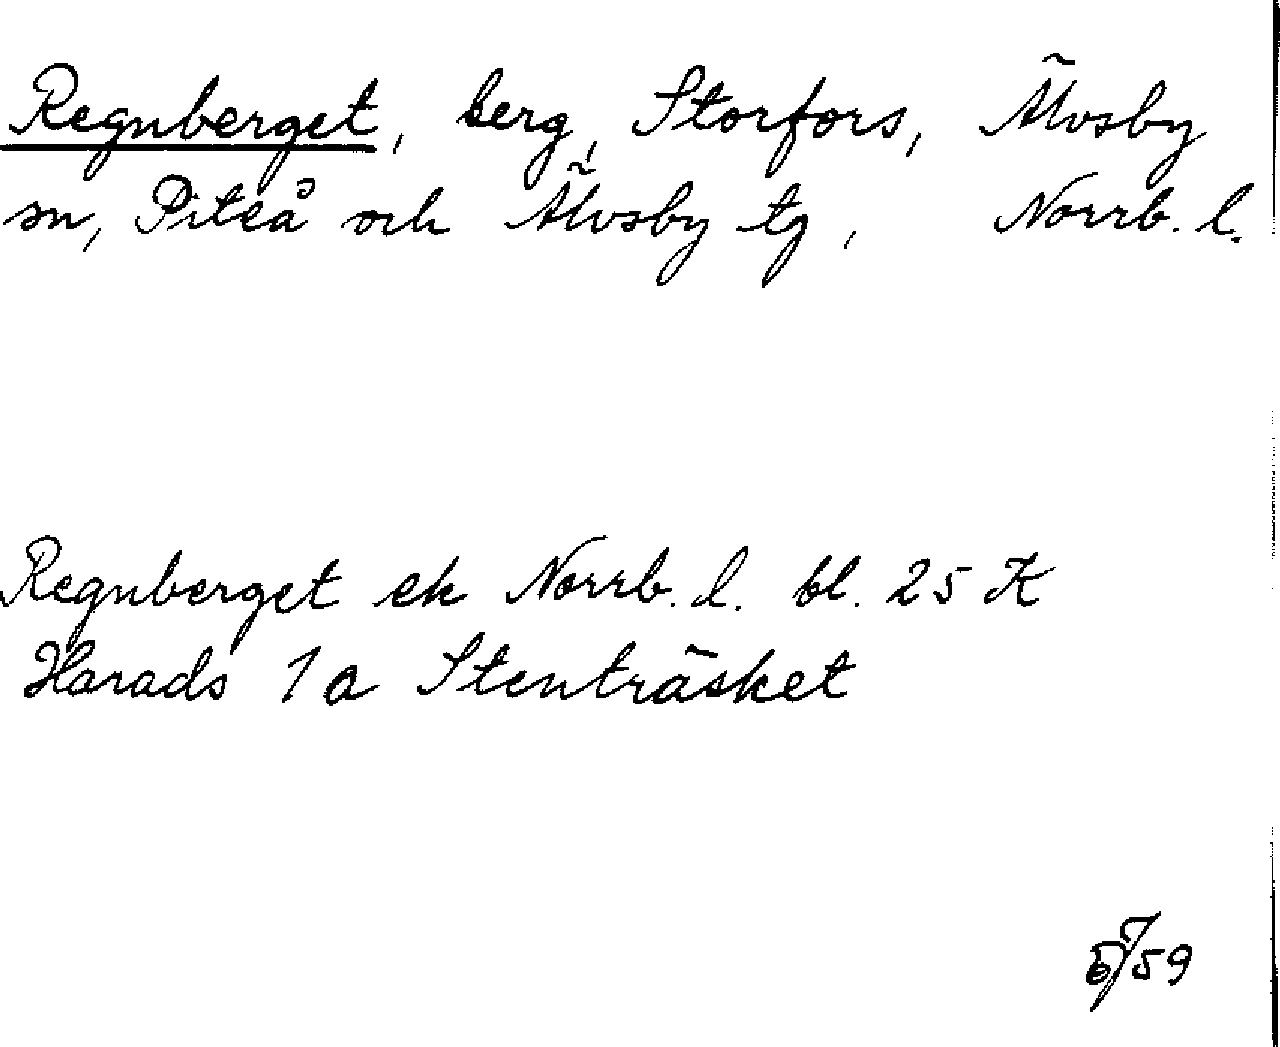 Regnberget, berg, Storfors, Älvsby
sn, Piteå och Älvsby tg, Norrb. l.
Regnberget ek Norrb. l. bl. 25 K
Harads 1 a Stenträsket